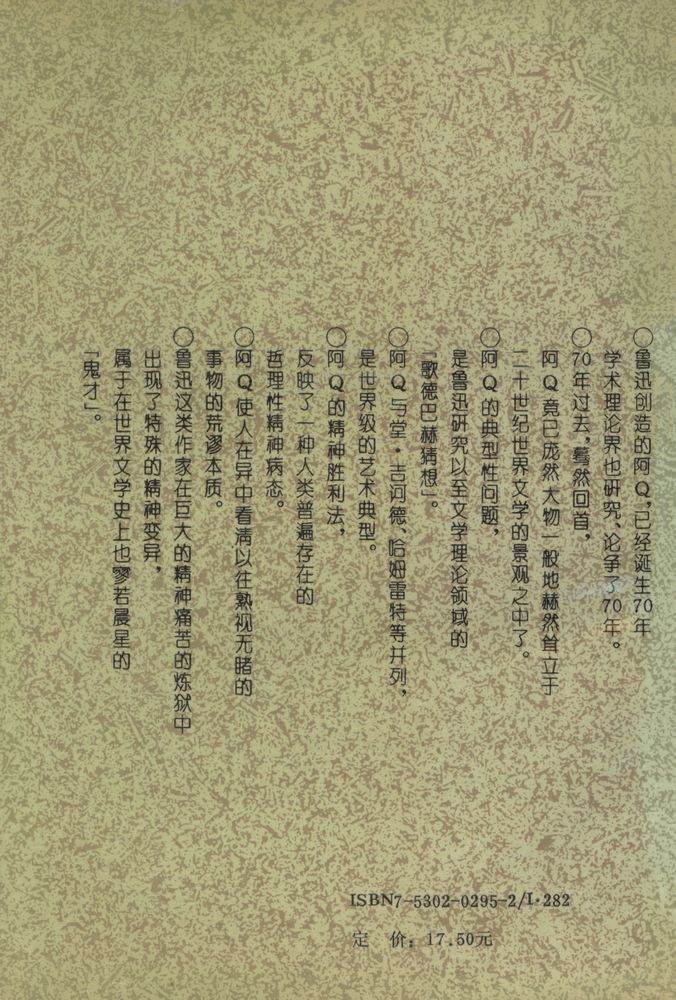 ○鲁迅创造的阿Q,已经诞生70年
学术理论界也研究、论争了70年。
○70年过去,蓦然回首,
阿Q竟已庞然大物一般地赫然耸立于
二十世纪世界文学的景观之中了。
○阿Q的典型性问题,
是鲁迅研究以至文学理论领域的
「歌德巴赫猜想」。
○阿Q与堂·吉诃德、哈姆雷特等并列,
是世界级的艺术典型。
○阿Q的精神胜利法,
反映了一种人类普遍存在的
哲理性精神病态。
○阿Q使人在异中看清以往熟视无睹的
事物的荒谬本质。
○鲁迅这类作家在巨大的精神痛苦的炼狱中
出现了特殊的精神变异,
属于在世界文学史上也寥若晨星的
「鬼才」。
ISBN7-5302-0295-2/I·282
定 价:17.50元